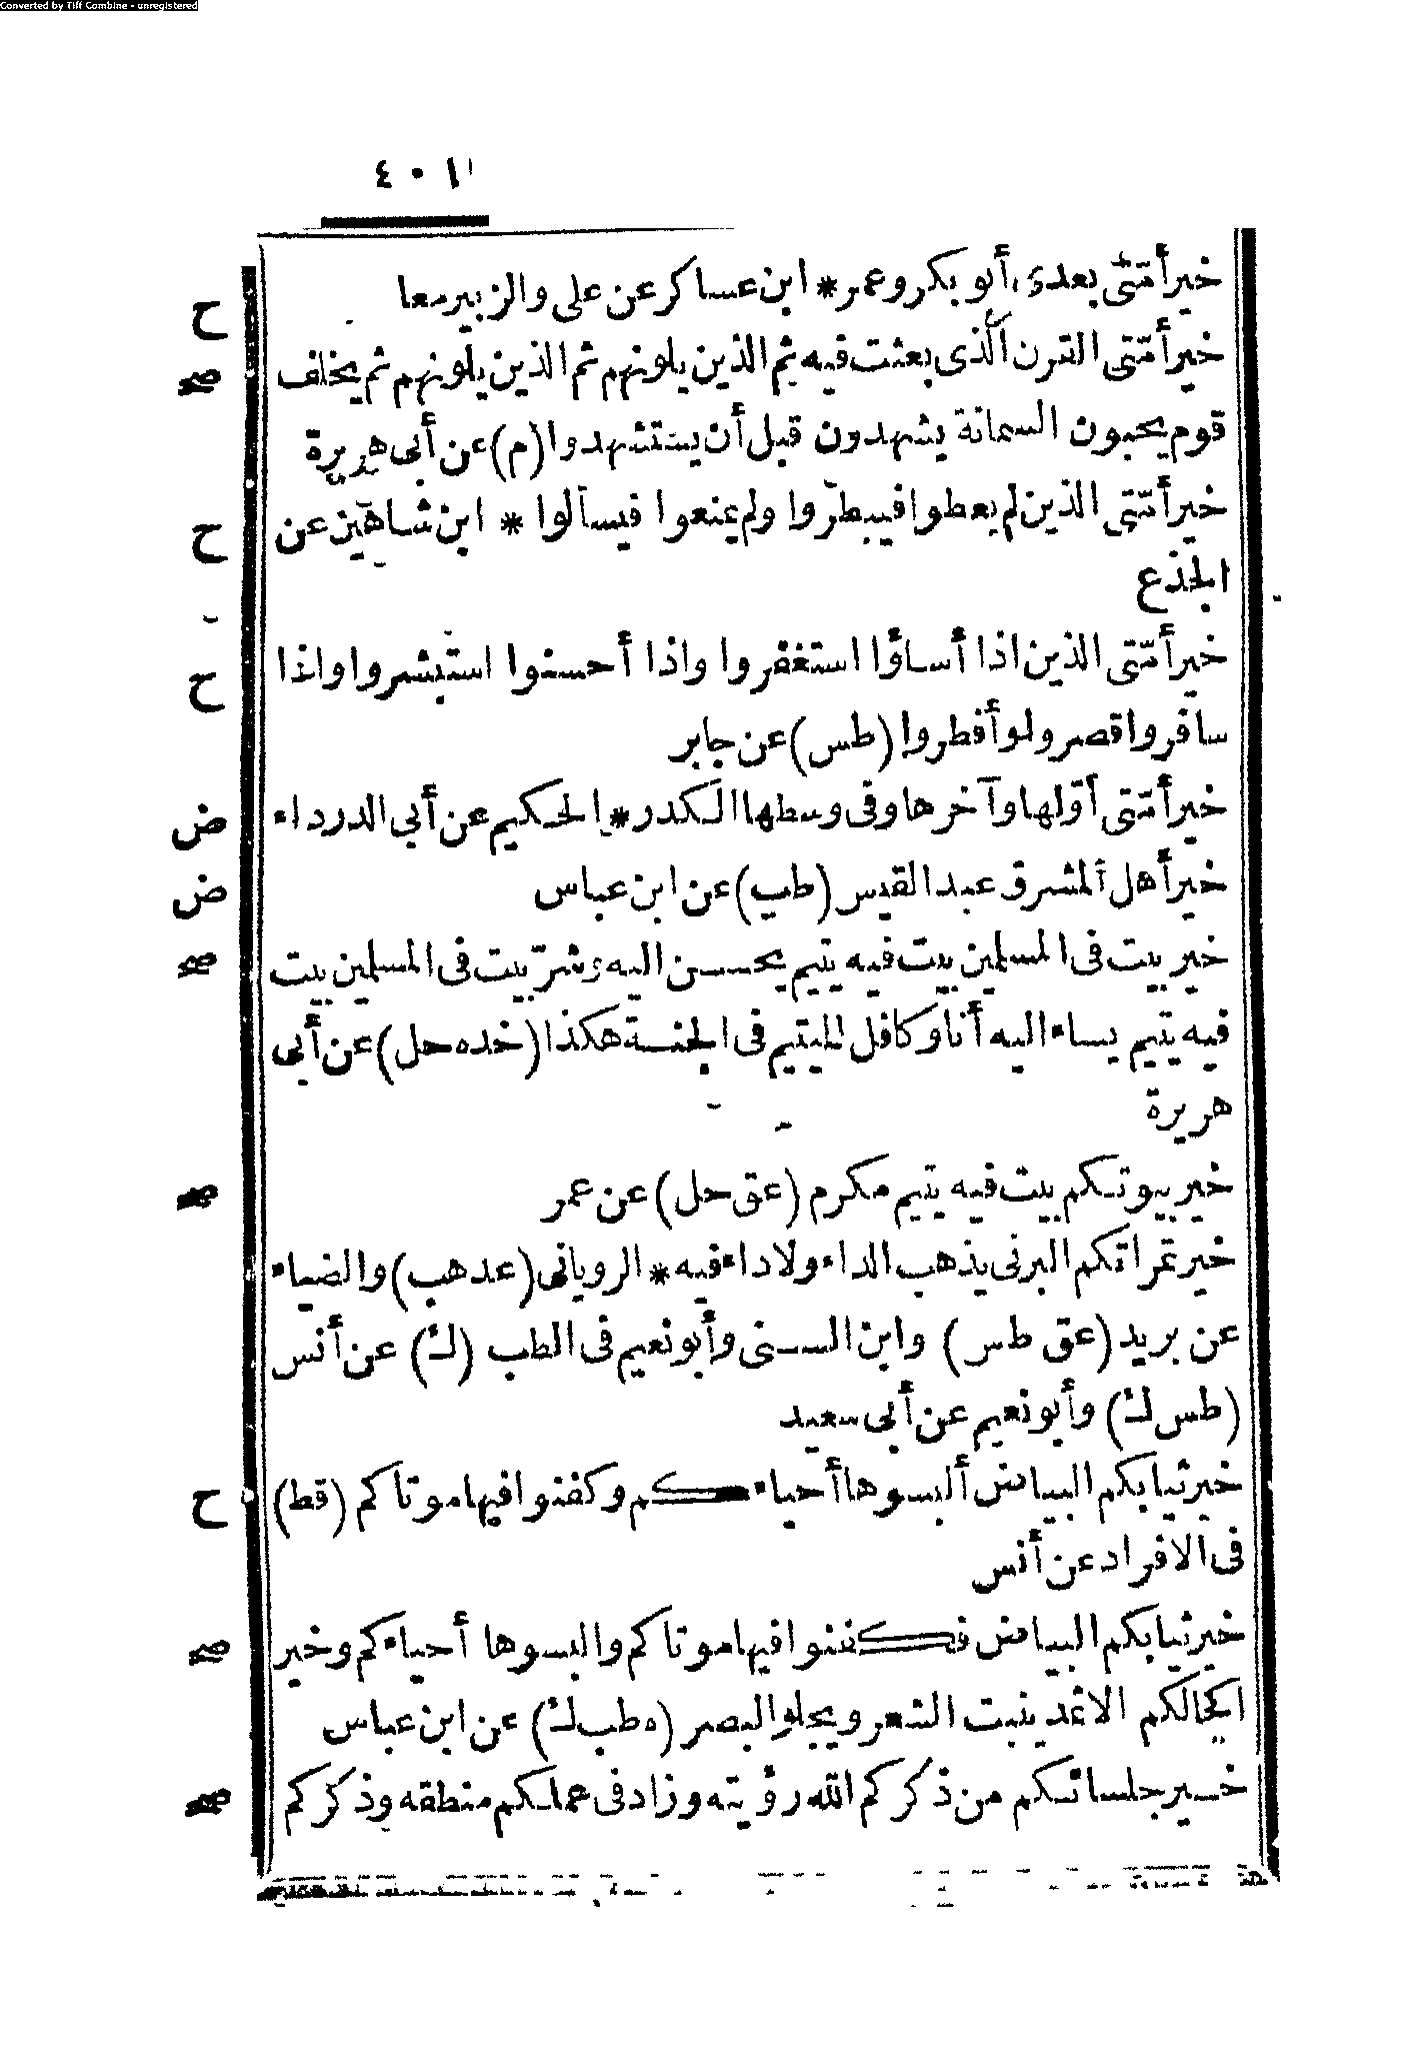 Converted by Tiff Combine - unregistered
٤٠١
خيرأمّتى بعدى أبو بكر وعمر * ابن عساكر عن على والزبير معا
ح
خيرأمّتى القرن الذى بعثت فيه ثم الذين يلونهم ثم الذين يلونهم ثم يخلف
صح
قوم يحبون السمانة يشهدون قبل أن يستشهدوا (م) عن أبى هريرة
خيرأمّتى الذين لم يعطوا فيبطروا ولم يمنعوا فيسألوا * ابن شاهين عن
ح
الجذع
خيرأمّتى الذين اذا أساؤا استغفروا واذا أحسنوا استبشروا واذا
ح
سافروا قصروا وأفطروا (طس) عن جابر
خيرأمّتى أوّلها وآخرها وفى وسطها الكدر * الحكيم عن أبى الدرداء
ض
خيرأهل المشرق عبد القيس (طب) عن ابن عباس
ض
خير بيت فى المسلمين بيت فيه يتيم يحسن اليه وشرّ بيت فى المسلمين بيت
صح
فيه يتيم يساء اليه أنا وكافل اليتيم فى الجنة هكذا (خده حل) عن أبى
هريرة
خير بيوتكم بيت فيه يتيم مكرم (عق حل) عن عمر
صح
خير تمراتكم البرنى يذهب الداء ولا داء فيه * الرويانى (عد هب) والضياء
عن بريد (عق طس) وابن السنى وأبو نعيم فى الطب (ك) عن أنس
(طس ك) وأبو نعيم عن أبى سعيد
خير ثيابكم البياض ألبسوها أحياءكم وكفنوا فيها موتاكم (قط)
ح
فى الافراد عن أنس
خير ثيابكم البياض فكفنوا فيها موتاكم والبسوها أحياءكم وخير
صح
اكحالكم الاثمد ينبت الشعر ويجلو البصر (ه طب ك) عن ابن عباس
خير جلسائكم من ذكركم الله رؤيته وزاد فى عملكم منطقه وذكركم
صح